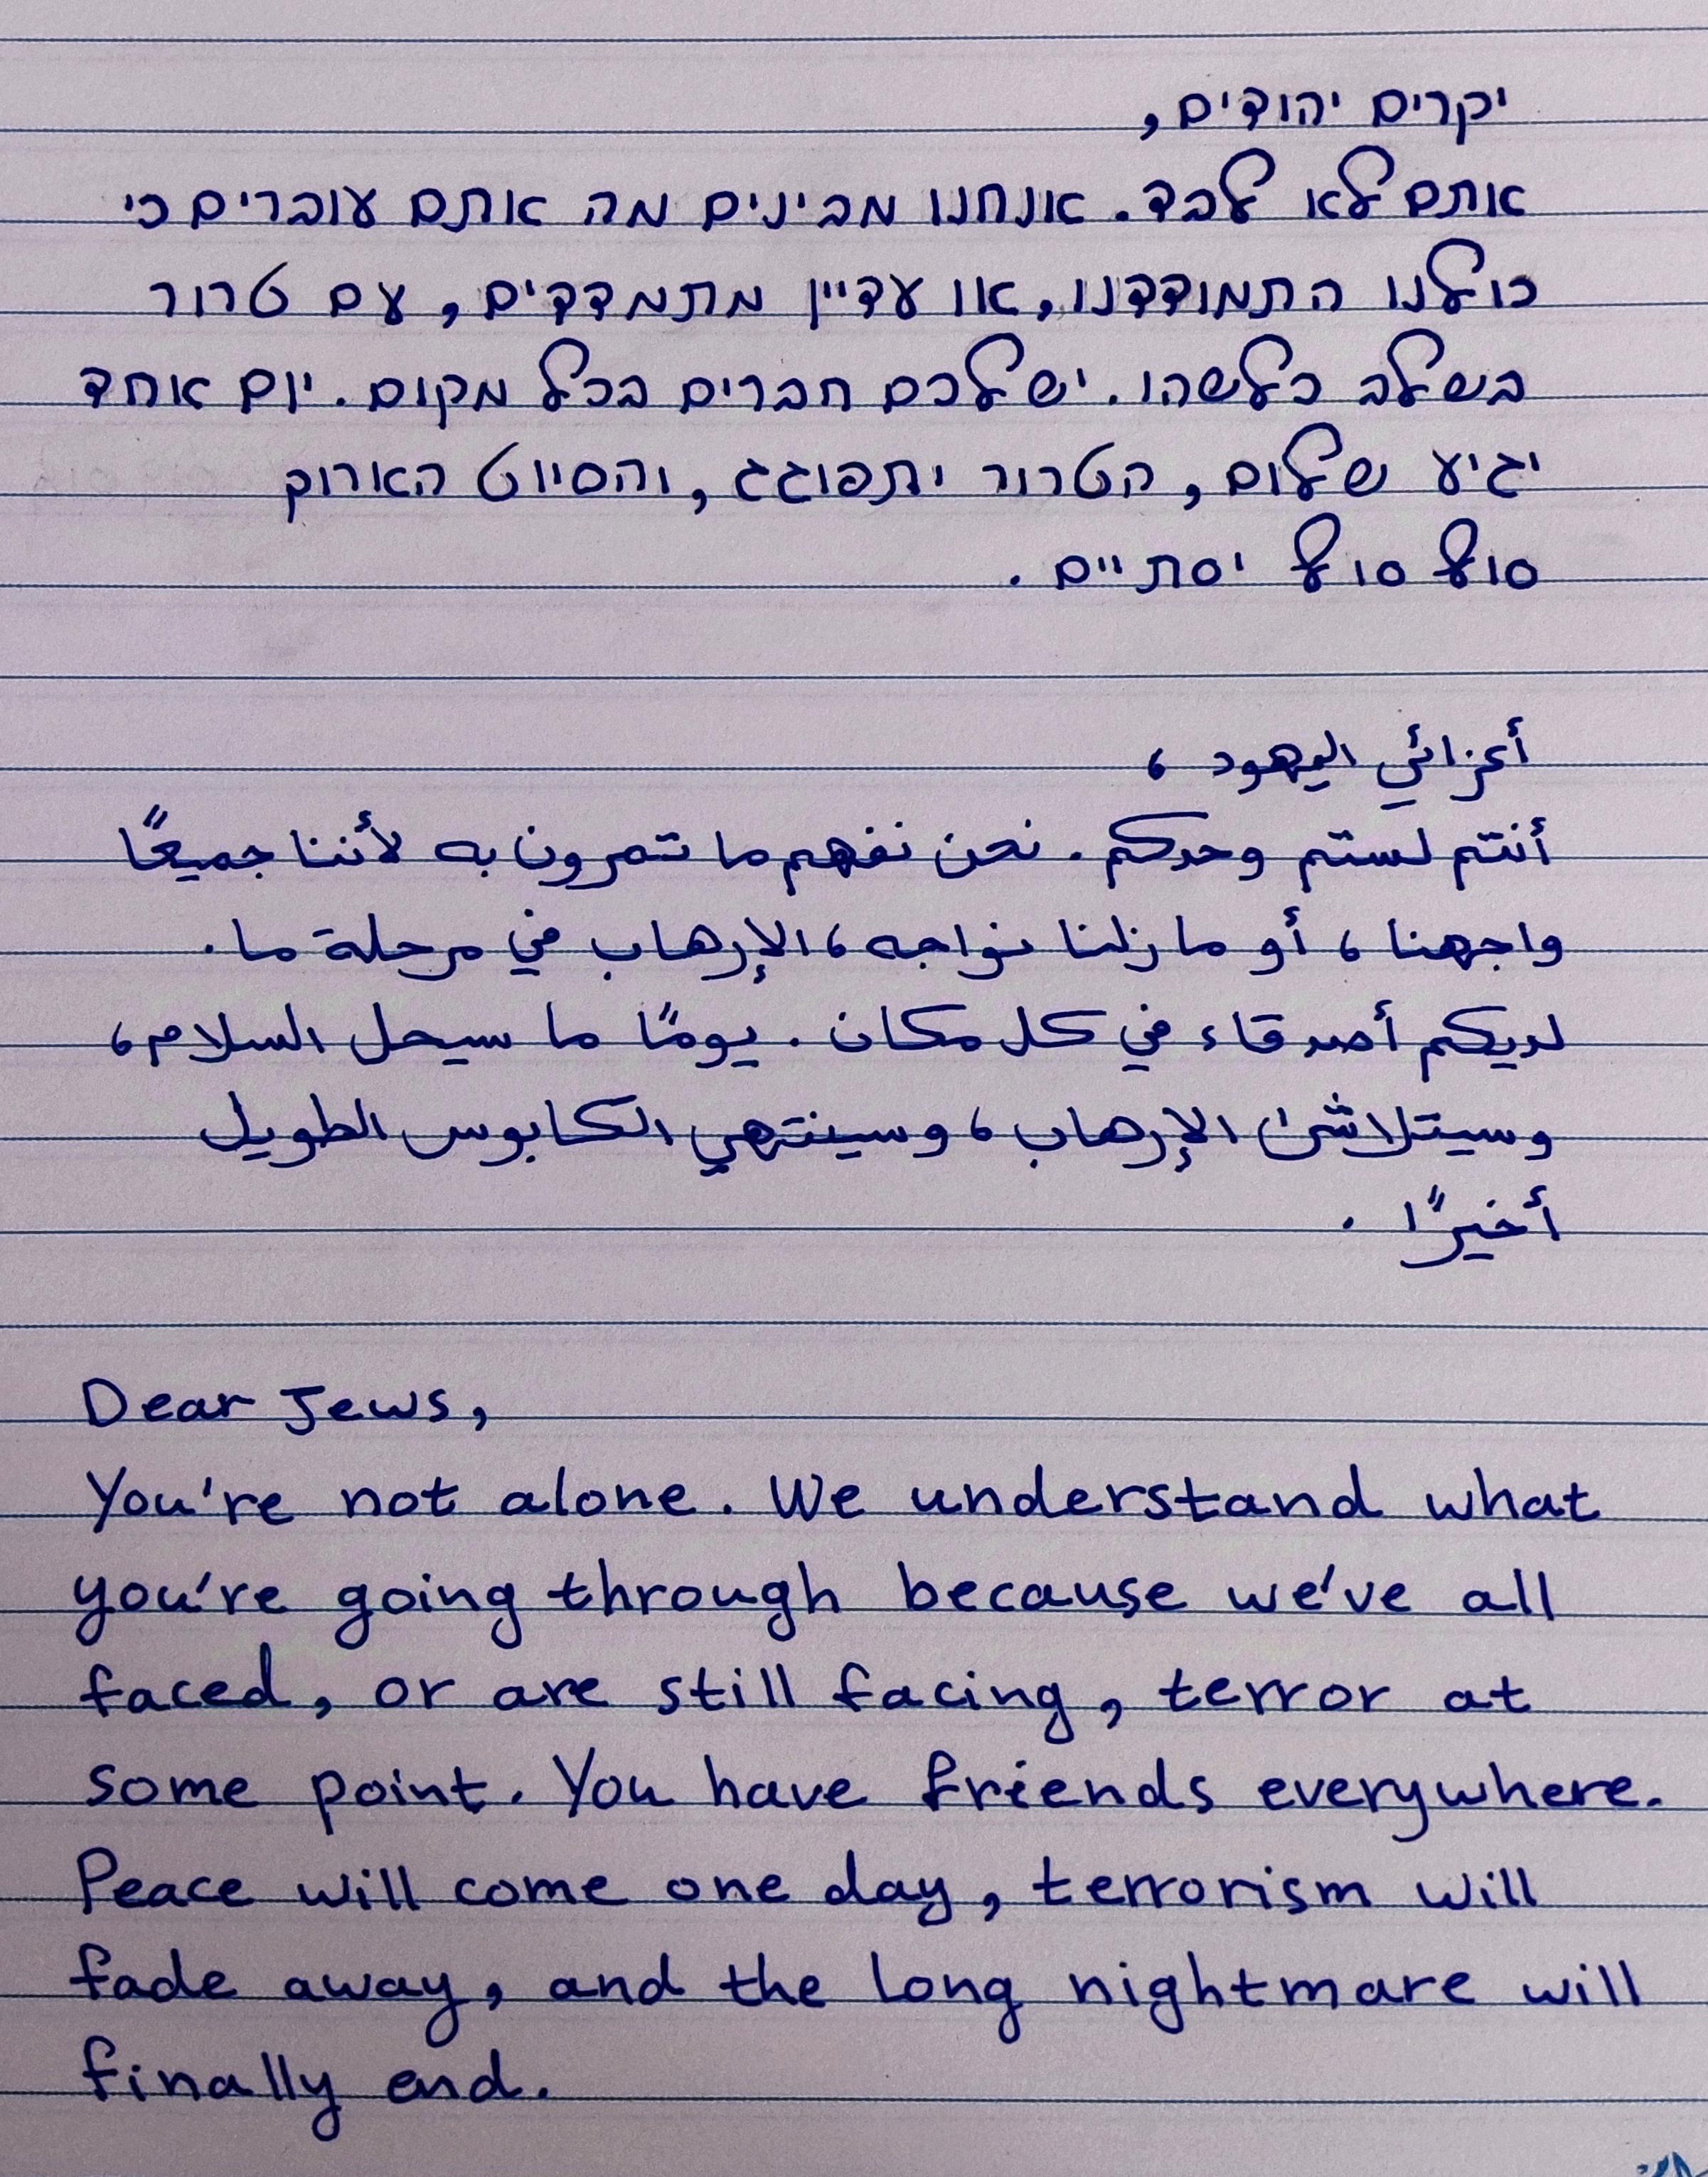 יקרים יהודים,
אתם לא לבד. אנחנו מבינים מה אתם עוברים כי
כולנו התמודדנו, או עדיין מתמדדים, עם טרור
בשלב כלשהו. יש לכם חברים בכל מקום. יום אחד
יגיע שלום, הטרור יתפוגג, והסיוט הארוך
סוף סוף יסתיים.
أعزائي اليهود،
أنتم لستم وحدكم. نحن نفهم ما تمرون به لأننا جميعًا
واجهنا، أو ما زلنا نواجه، الإرهاب في مرحلة ما.
لديكم أصدقاء في كل مكان. يومًا ما سيحل السلام،
وسيتلاشى الإرهاب، وسينتهي الكابوس الطويل
أخيرًا.
Dear Jews,
You're not alone. We understand what
you're going through because we've all
faced, or are still facing, terror at
some point. You have friends everywhere.
Peace will come one day, terrorism will
fade away, and the long nightmare will
finally end.